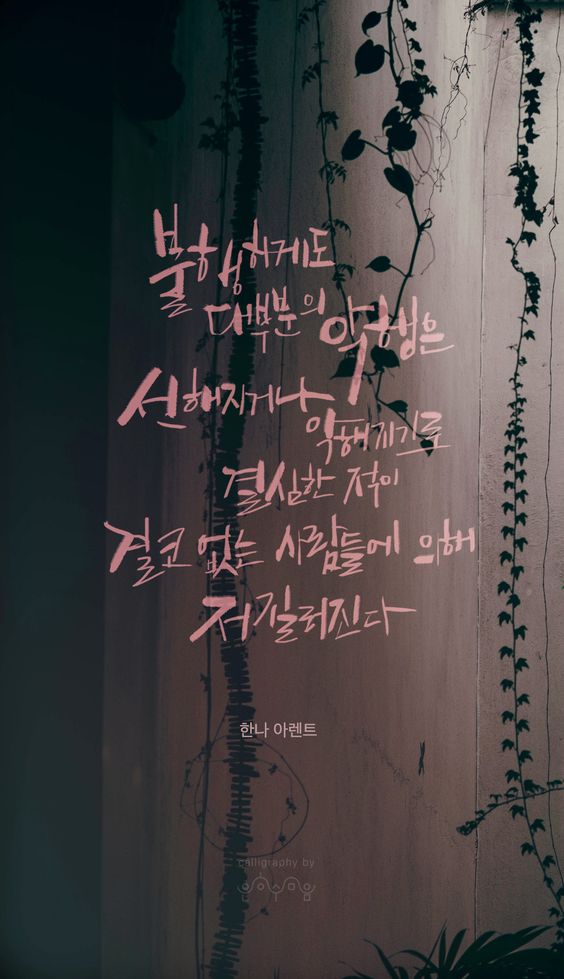 불행하게도
대부분의 악행은
선해지거나
악해지기로
결심한 적이
결코 없는 사람들에 의해
저질러진다
한나 아렌트
calligraphy by